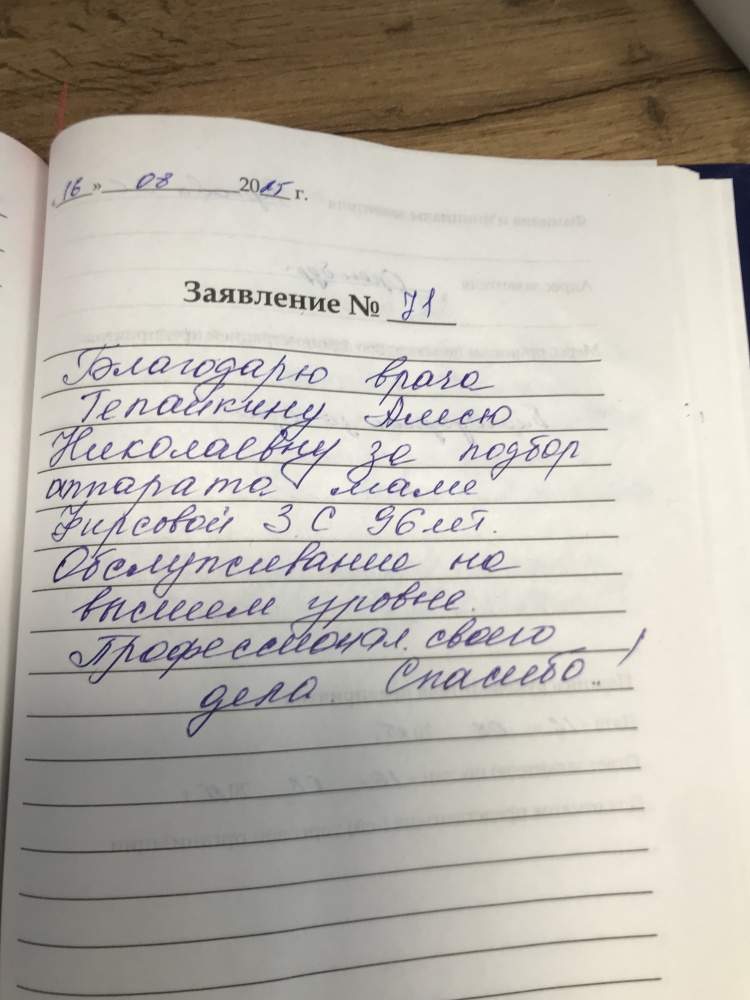 «16» 08 2025 г.
Заявление № 71
Благодарю врача
Тепайкину Алесю
Николаевну за подбор
аппарата маме
Фирсовой З.С 96 лет.
Обслуживание на
высшем уровне.
Профессионал своего
дела Спасибо!